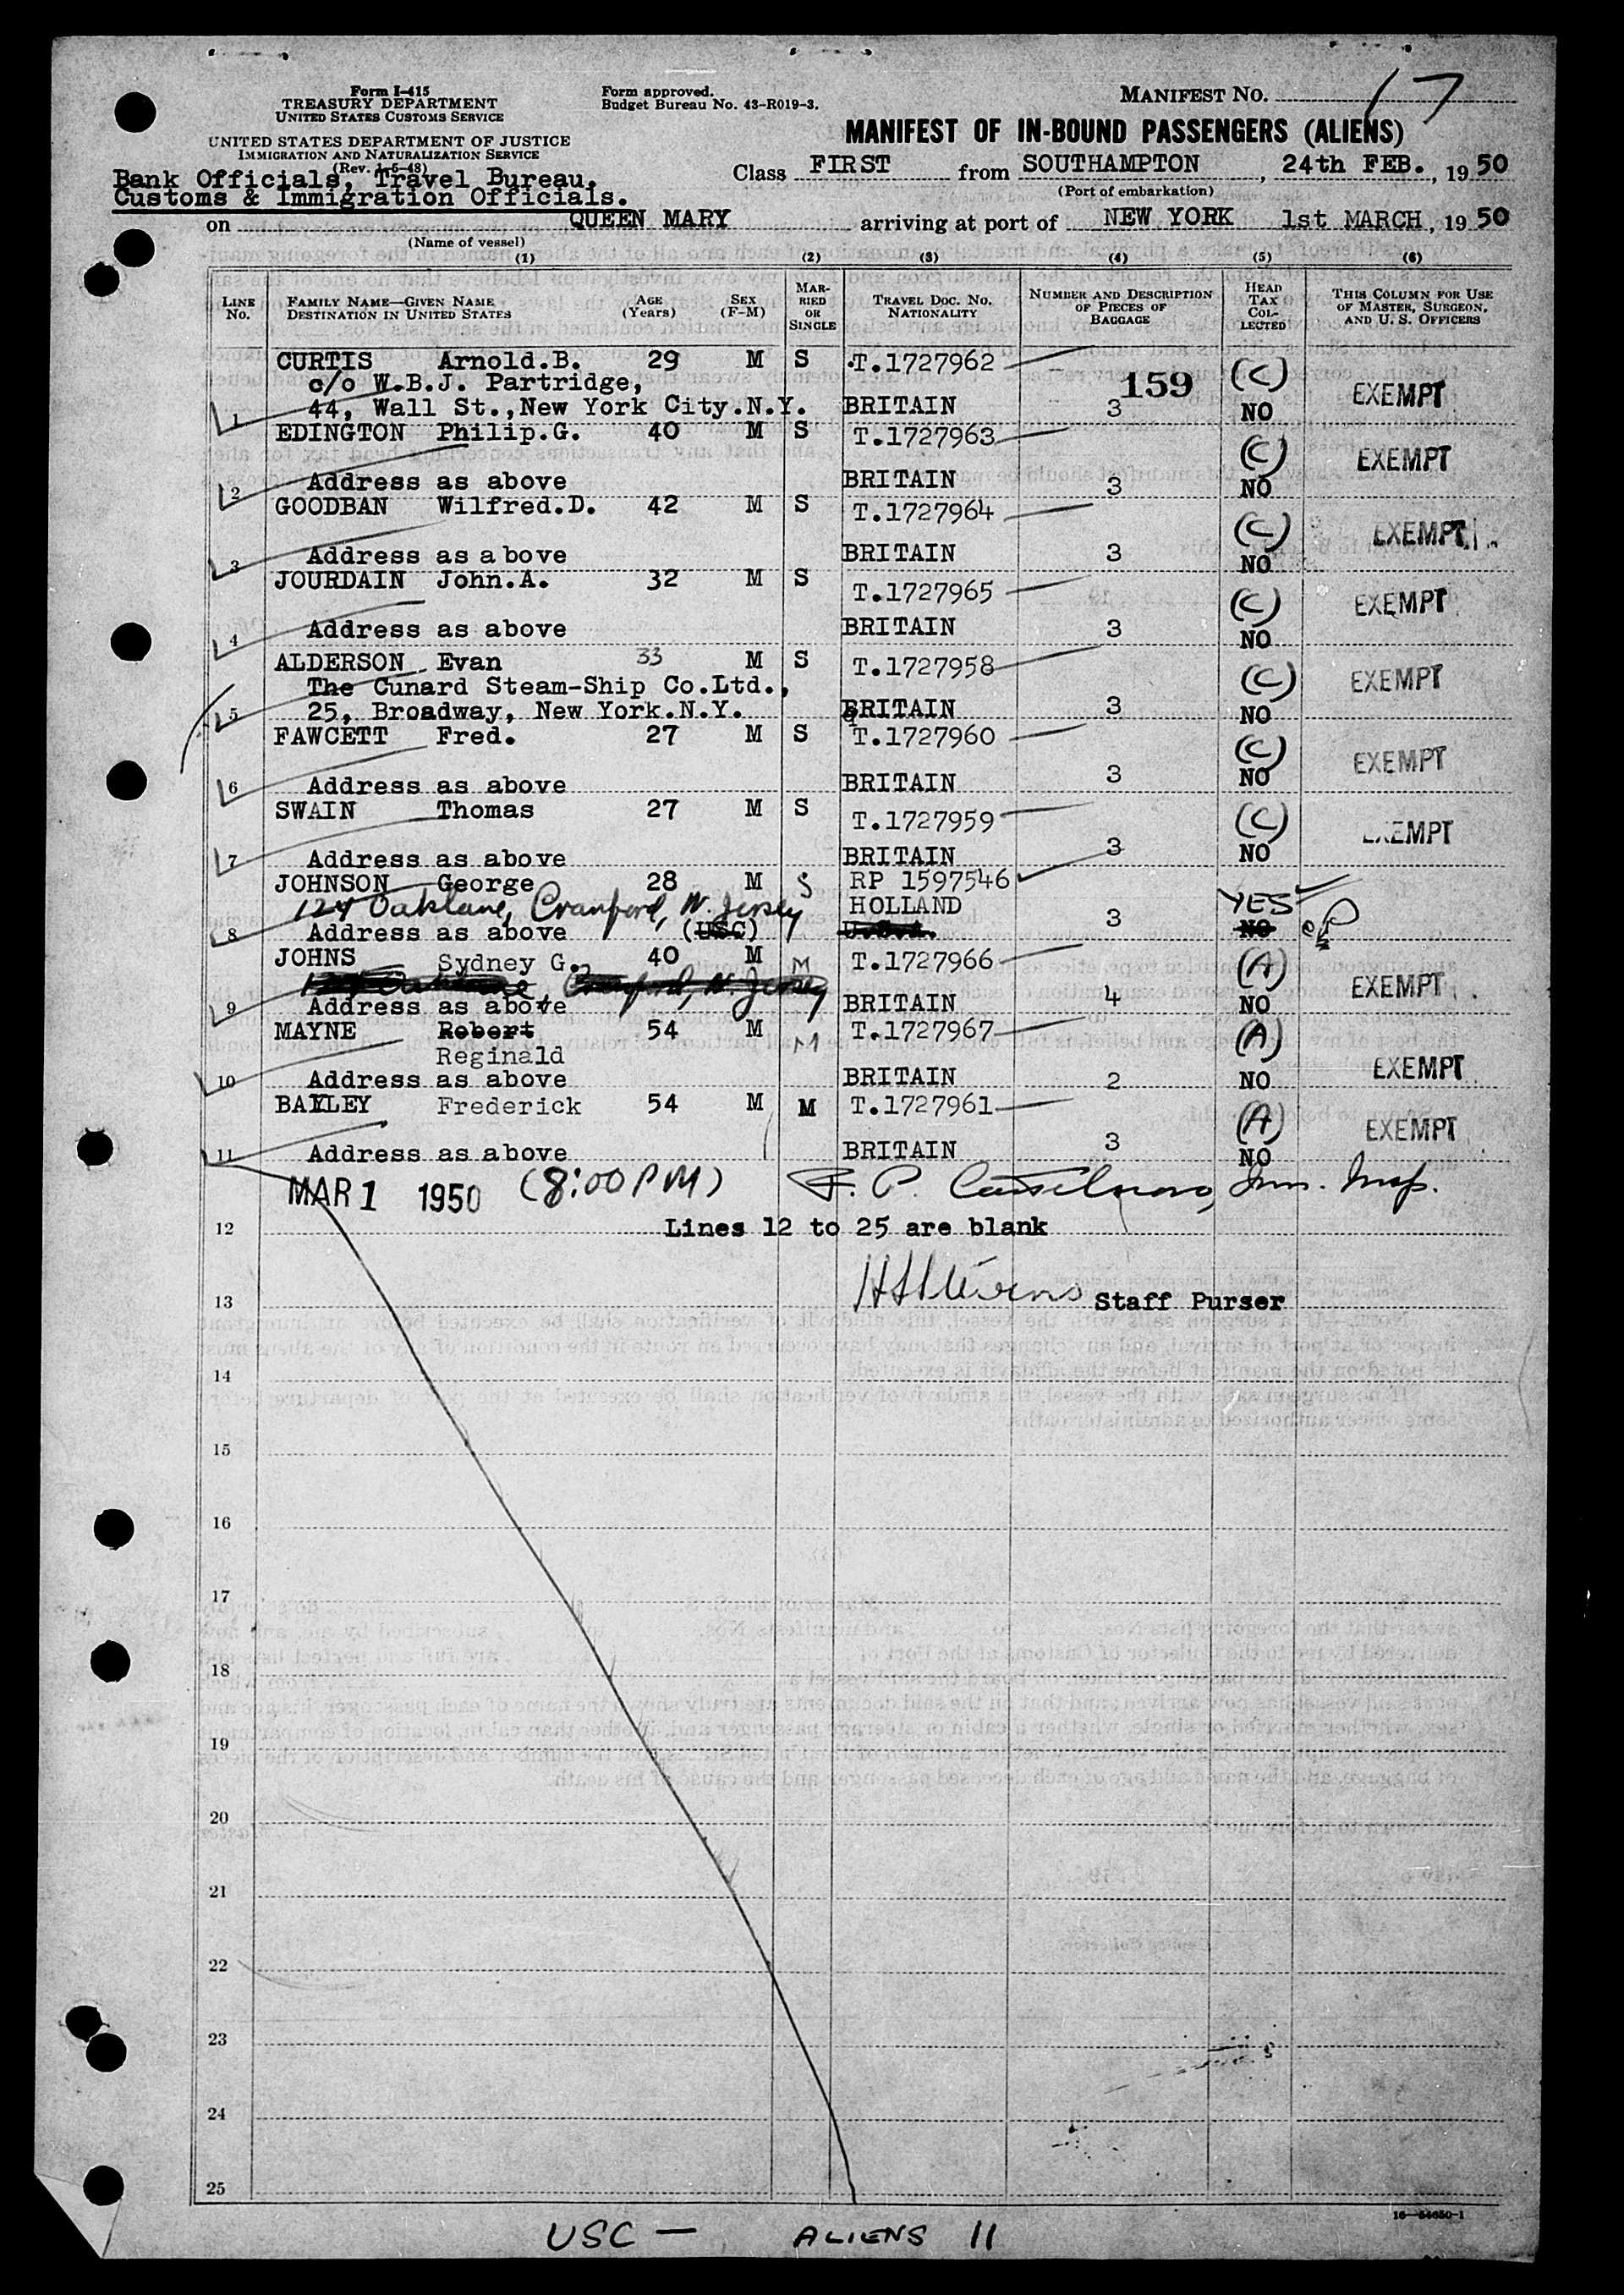 Form I-415
TREASURY DEPARTMENT
UNITED STATES CUSTOMS SERVICE
UNITED STATES DEPARTMENT OF JUSTICE
IMMIGRATION AND NATURALIZATION SERVICE
(Rev. 1-5-48)
Form approved.
Budget Bureau No. 43-R019-3.
MANIFEST NO. 17
MANIFEST OF IN-BOUND PASSENGERS (ALIENS)
Bank Officials, Travel Bureau,
Customs & Immigration Officials.
Class FIRST from SOUTHAMPTON, 24th FEB., 1950
(Port of embarkation)
on QUEEN MARY arriving at port of NEW YORK 1st MARCH, 1950
(Name of vessel)
(1) (2) (3) (4) (5) (6)
LINE No. FAMILY NAME—GIVEN NAME DESTINATION IN UNITED STATES AGE (Years) SEX (F-M) MARRIED OR SINGLE TRAVEL DOC. NO. NATIONALITY NUMBER AND DESCRIPTION OF PIECES OF BAGGAGE HEAD TAX COLLECTED THIS COLUMN FOR USE OF MASTER, SURGEON, AND U. S. OFFICERS
CURTIS Arnold.B. 29 M S T.1727962 159 (C) EXEMPT
c/o W.B.J. Partridge,
1 44, Wall St.,New York City.N.Y. BRITAIN 3 NO
EDINGTON Philip.G. 40 M S T.1727963 (C) EXEMPT
2 Address as above BRITAIN 3 NO
GOODBAN Wilfred.D. 42 M S T.1727964 (C) EXEMPT
3 Address as above BRITAIN 3 NO
JOURDAIN John.A. 32 M S T.1727965 (C) EXEMPT
4 Address as above BRITAIN 3 NO
ALDERSON Evan 33 M S T.1727958 (C) EXEMPT
The Cunard Steam-Ship Co.Ltd.,
5 25, Broadway, New York.N.Y. BRITAIN 3 NO
FAWCETT Fred. 27 M S T.1727960 (C) EXEMPT
6 Address as above BRITAIN 3 NO
SWAIN Thomas 27 M S T.1727959 (C) EXEMPT
7 Address as above BRITAIN 3 NO
JOHNSON George 28 M S RP 1597546
124 Oaklane, Cranford, N. Jersey HOLLAND 3 YES
8 Address as above (USC) U.S.A. NO
JOHNS Sydney G. 40 M M T.1727966 (A) EXEMPT
Cranford, N. Jersey
9 Address as above BRITAIN 4 NO
MAYNE Robert 54 M M T.1727967 (A) EXEMPT
Reginald
10 Address as above BRITAIN 2 NO
BAYLEY Frederick 54 M M T.1727961 (A) EXEMPT
11 Address as above BRITAIN 3 NO
MAR 1 1950 (8:00 PM) F. P. Imm. Insp.
12 Lines 12 to 25 are blank
13 Staff Purser
14
15
16
17
18
19
20
21
22
23
24
25
16—54650-1
USC — ALIENS 11